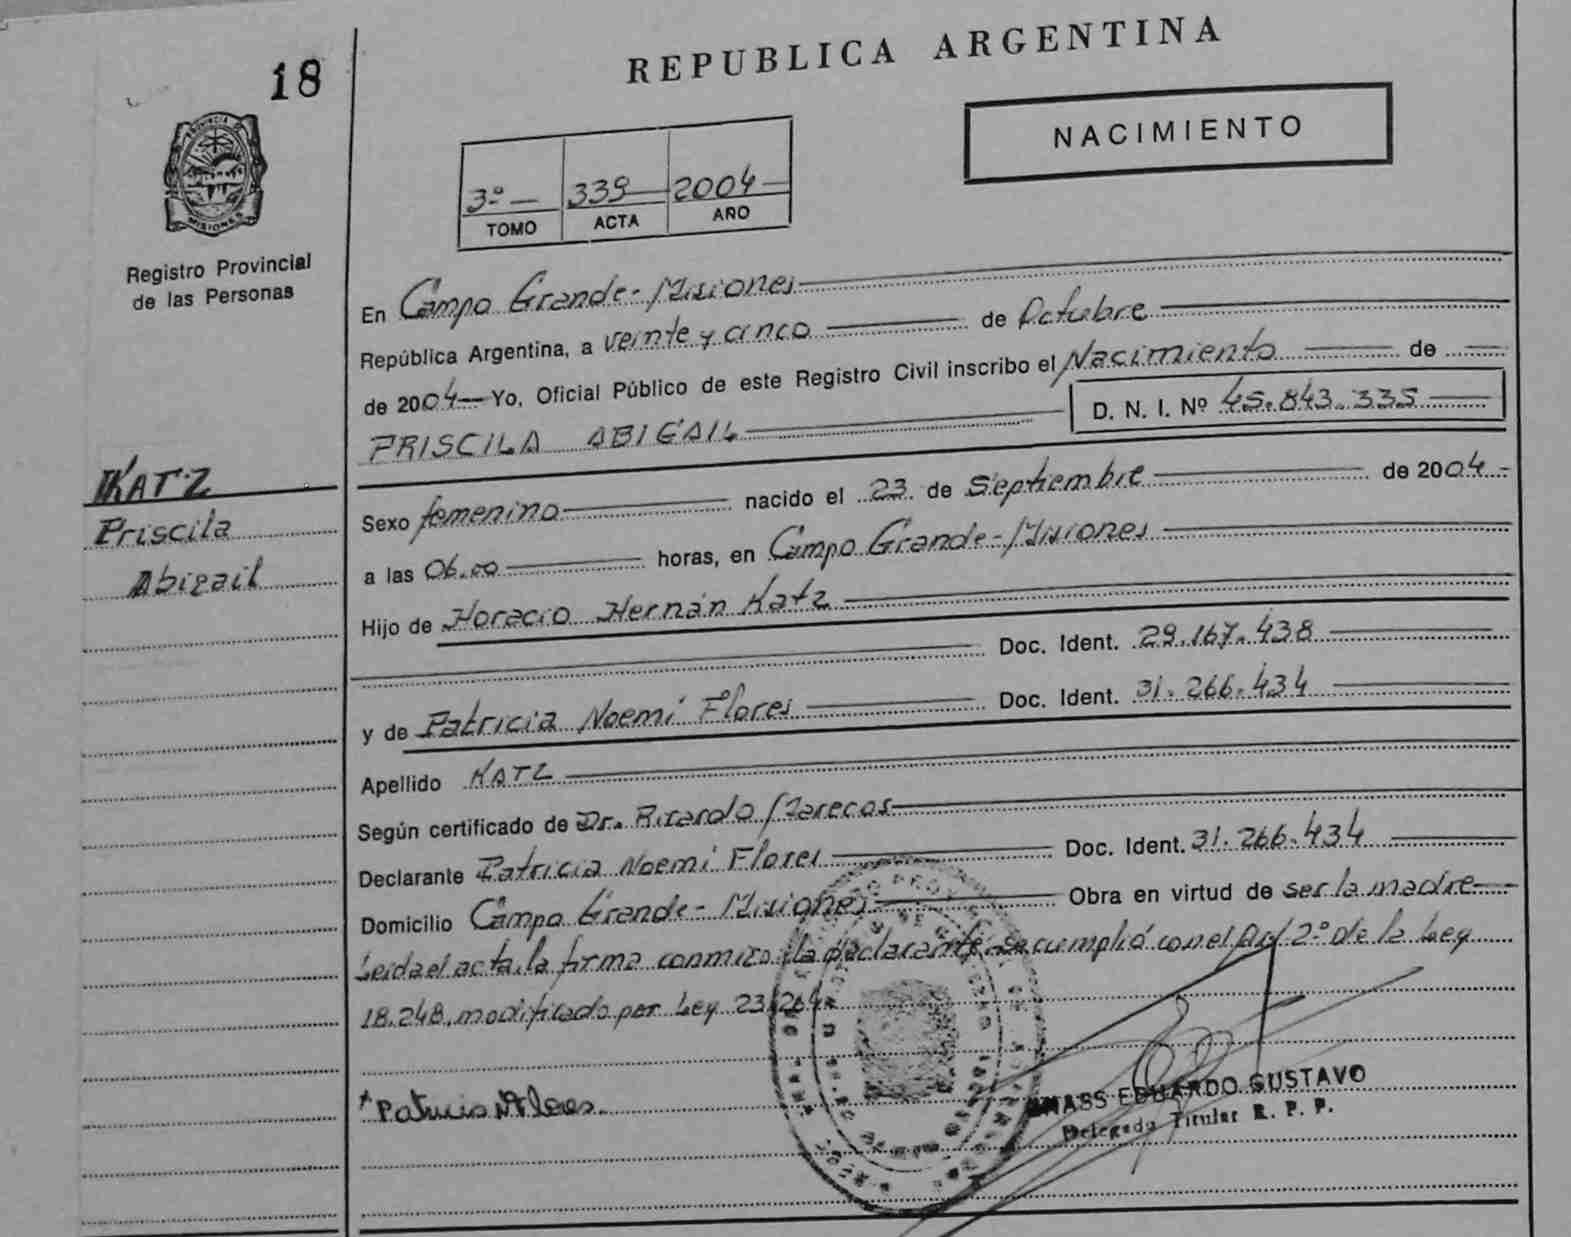 18
REPUBLICA ARGENTINA
NACIMIENTO
PROVINCIA DE
MISIONES
Registro Provincial
de las Personas
3º 339 2004
TOMO ACTA AÑO
En Campo Grande - Misiones
República Argentina, a veinte y cinco de Octubre
de 2004 Yo, Oficial Público de este Registro Civil inscribo el Nacimiento de
PRISCILA ABIGAIL D. N. I. Nº 45.843.335
KATZ
Priscila
Abigail
Sexo femenino nacido el 23 de Septiembre de 2004
a las 06.00 horas, en Campo Grande - Misiones
Hijo de Horacio Hernán Katz
Doc. Ident. 29.167.438
y de Patricia Noemí Flores Doc. Ident. 31.266.434
Apellido KATZ
Según certificado de Dr. Ricardo Marecos
Declarante Patricia Noemí Flores Doc. Ident. 31.266.434
Domicilio Campo Grande - Misiones Obra en virtud de ser la madre
Leida el acta, la firma conmigo la declarante, se cumplió con el Art 2º de la Ley
18.248, modificado por Ley 23.264
Patricia N Flores.
EDUARDO GUSTAVO
Delegado Titular R. P. P.